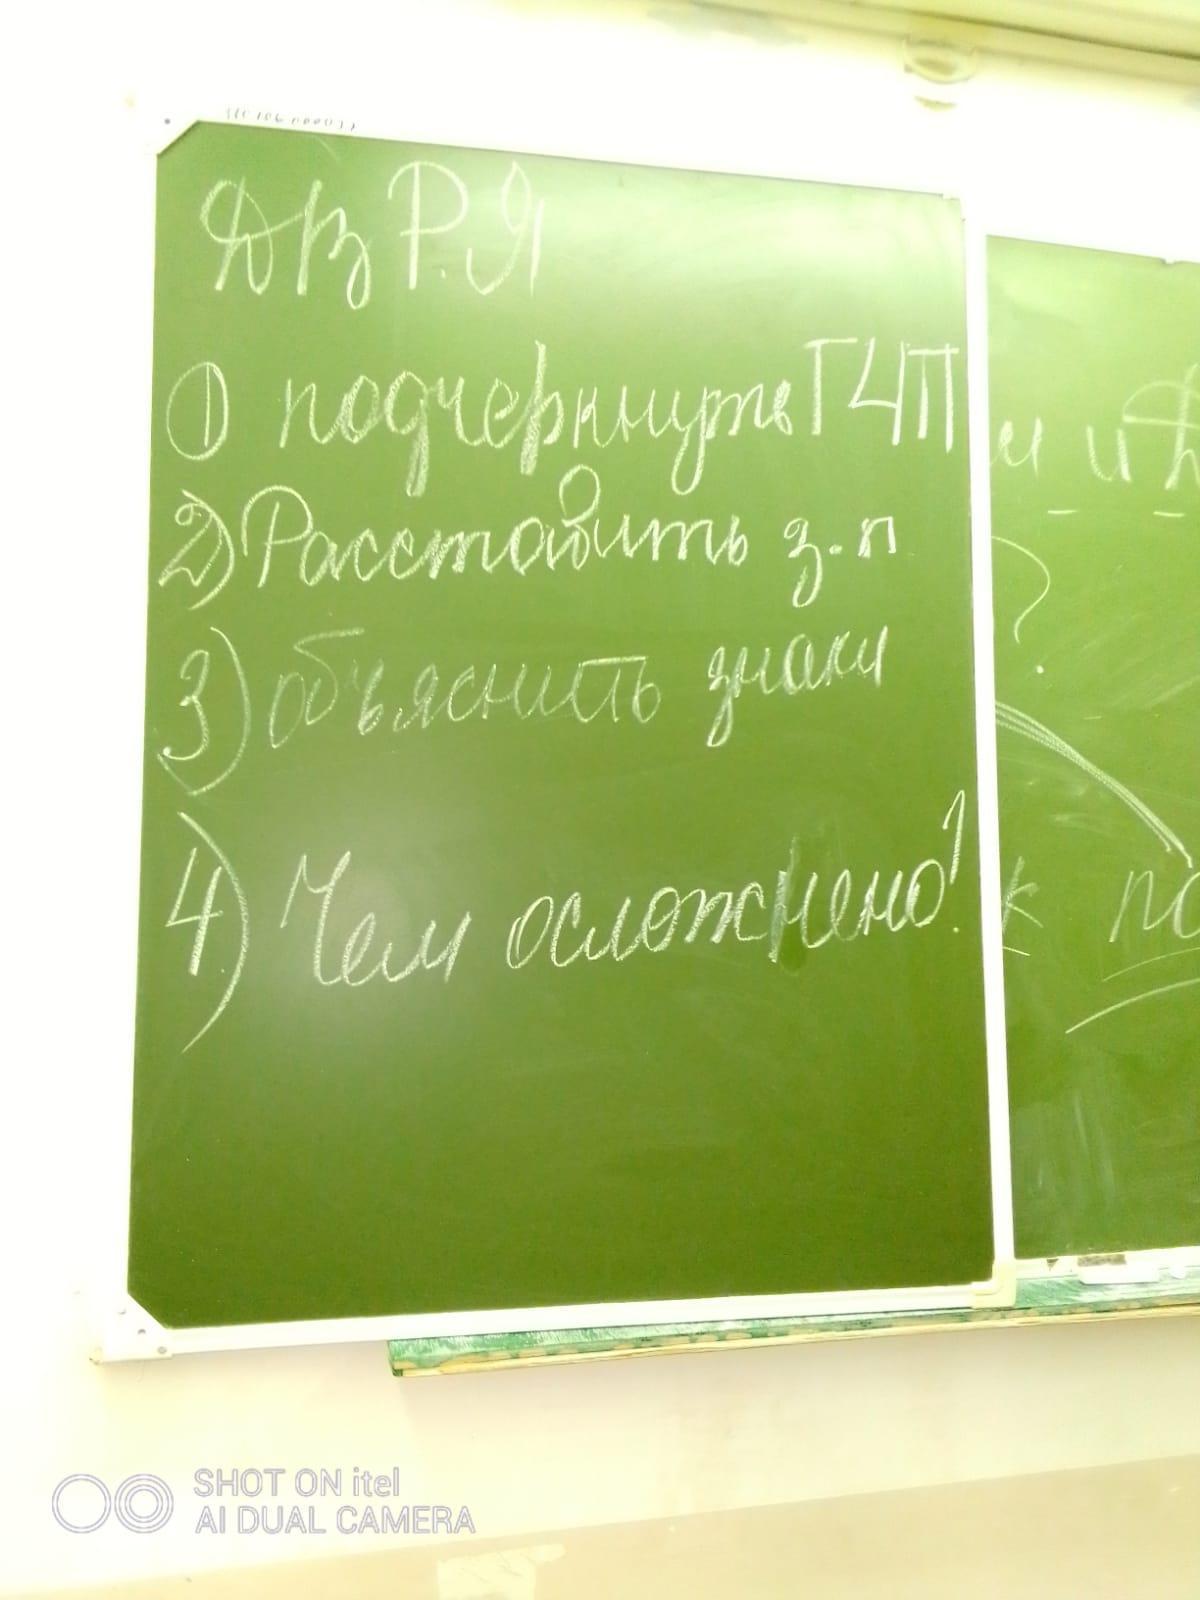 ДЗ Р.Я
1) подчеркнуть ГЧП
2) Расставить з.п
3) объяснить знаки
4) Чем осложнено?
м и
?
к по
SHOT ON itel
AI DUAL CAMERA